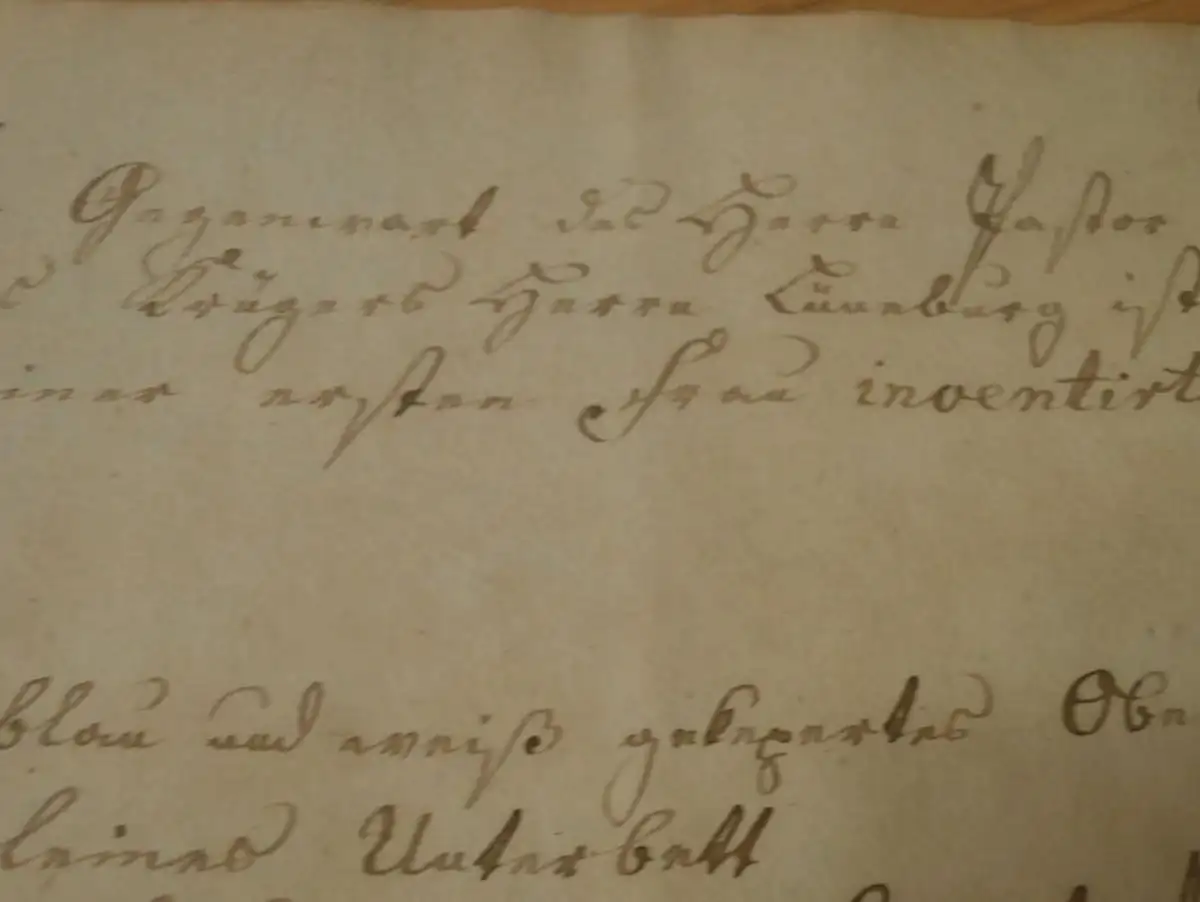 Gegenwart des Herrn Pastor
s Krügers Herrn Lüneburg ist
einer ersten Frau inventirt
blau und weiß gekepertes Obe
leines Unterbett